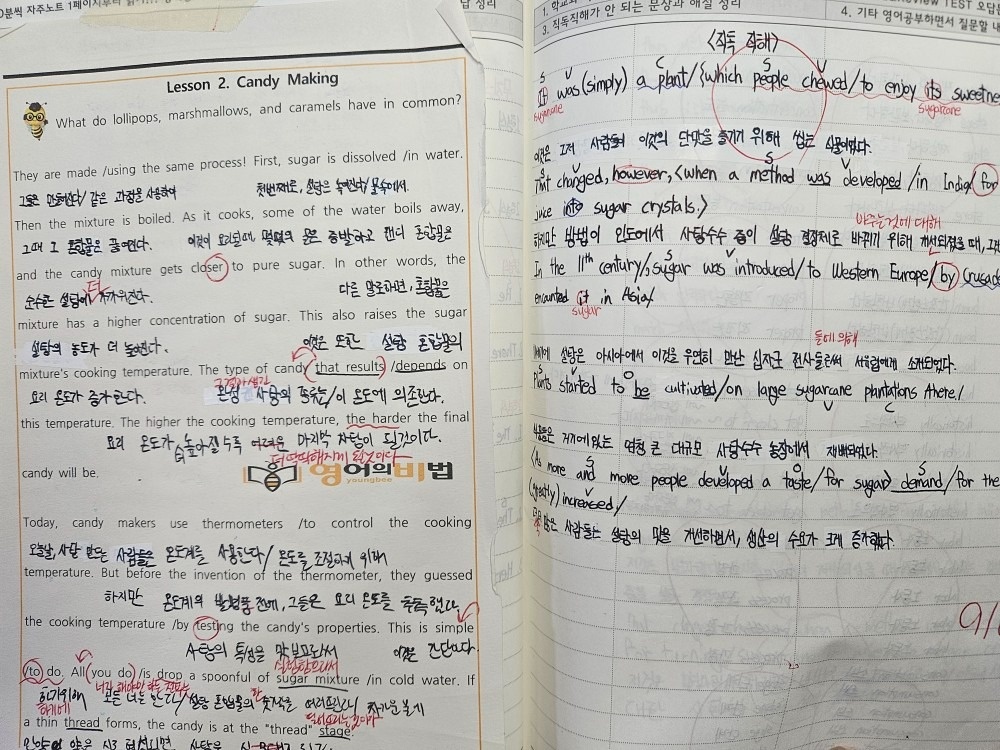 0분씩 자주노트 1페이지부터
Lesson 2. Candy Making
What do lollipops, marshmallows, and caramels have in common?
They are made /using the same process! First, sugar is dissolved /in water.
그들은 만들어진다/ 같은 과정을 사용하여 첫번째로, 설탕은 녹는다/ 물속에서.
Then the mixture is boiled. As it cooks, some of the water boils away,
그때 그 혼합물은 끓여진다. 이것이 요리될때, 몇몇의 물은 증발하고 캔디 혼합물은
and the candy mixture gets closer to pure sugar. In other words, the
더
순수한 설탕에 가까워진다. 다른 말로하면, 혼합물은
mixture has a higher concentration of sugar. This also raises the sugar
설탕의 농도가 더 높아진다. 이것은 또한 설탕 혼합물의
mixture's cooking temperature. The type of candy (that results) /depends on
요리 온도가 증가한다. 완성 사탕의 종류는/ 이 온도에 의존한다.
this temperature. The higher the cooking temperature, the harder the final
요리 온도가 높아질수록 어려운 마지막 사탕이 될것이다.
더 딱딱해지게 될것이다
candy will be.
영어의비법
youngbee
Today, candy makers use thermometers /to control the cooking
오늘날, 사탕 만드는 사람들은 온도계를 사용한다/ 온도를 조절하기 위해
temperature. But before the invention of the thermometer, they guessed
하지만 온도계의 발명품 전에, 그들은 요리 온도를 추측했다.
the cooking temperature /by testing the candy's properties. This is simple
사탕의 특성을 맛봄으로써 이것은 간단하다.
실험함으로써
/to do. All (you do) /is drop a spoonful of sugar mixture /in cold water. If
하기위해 모든 너는 한다/ 설탕 혼합물의
하기에
a thin thread forms, the candy is at the "thread" stage.
답 정리
3. 직독직해가 안 되는 문장과 해설 정리
4. 기타 영어공부하면서 질문할 내
<직독 직해>
S V C S V
It was (simply) a plant/ {which people chewed/ to enjoy its sweetne
sugarcane sugarcane
이것은 그저 사람들이 이것의 단맛을 즐기기 위해 씹는 식물이었다.
S V
That changed, however, <when a method was developed /in India/ for
juice into sugar crystals.>
바꾸는것에 대해
하지만 방법이 인도에서 사탕수수 즙이 설탕 결정체로 바뀌기 위해 개선되졌을 때, 그
In the 11th century/, sugar was introduced/ to Western Europe/ (by) Crusad
encounted it in Asia/
sugar
들에 의해
설탕은 아시아에서 이것을 우연히 만난 십자군 전사들로써 서유럽에게 소개되었다.
Plants started to be cultivated/ on large sugarcane plantations /there./
식물들은 거기에 있는 큰 대규모 사탕수수 농장에서 재배되었다.
<As more and more people developed a taste/ for sugar> demand/ for the
(greatly) increased/
많은 사람들은 설탕의 맛을 개선하면서, 생산의 수요가 크게 증가했다.